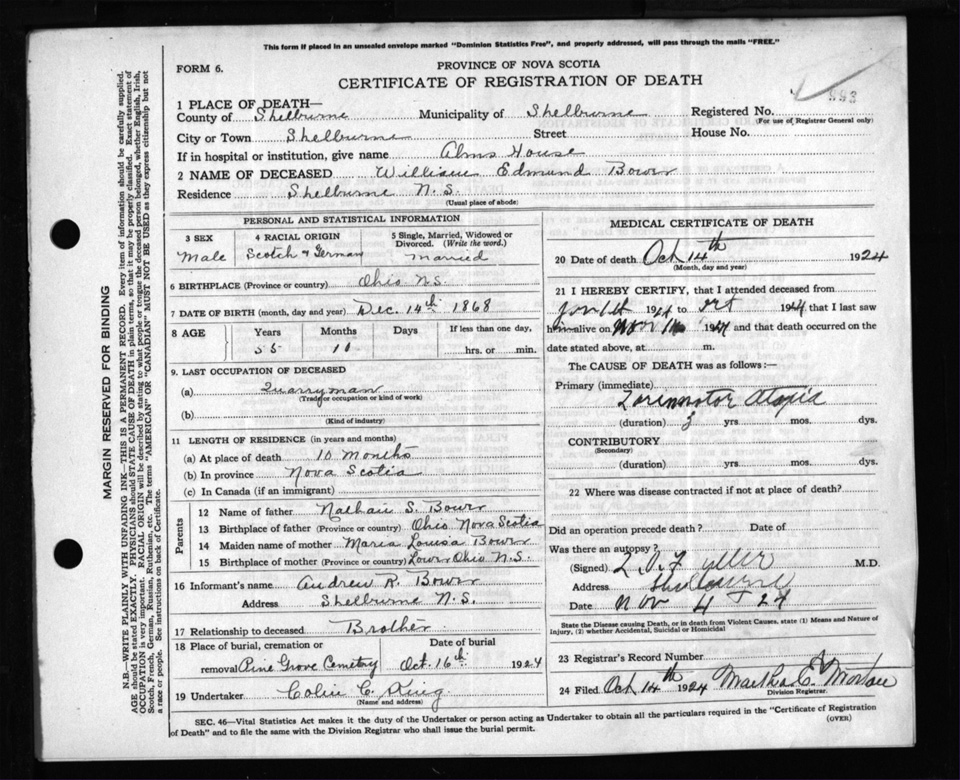 This form if placed in an unsealed envelope marked "Dominion Statistics Free", and properly addressed, will pass through the mails "FREE."
PROVINCE OF NOVA SCOTIA
FORM 6.
CERTIFICATE OF REGISTRATION OF DEATH
993
1 PLACE OF DEATH—
County of Shelburne Municipality of Shelburne Registered No.
(For use of Registrar General only)
City or Town Shelburne Street House No.
If in hospital or institution, give name Alms House
2 NAME OF DECEASED William Edmund Bower
Residence Shelburne N.S.
(Usual place of abode)
PERSONAL AND STATISTICAL INFORMATION
3 SEX 4 RACIAL ORIGIN 5 Single, Married, Widowed or Divorced. (Write the word.)
Male Scotch & German Married
6 BIRTHPLACE (Province or country) Ohio N.S.
7 DATE OF BIRTH (month, day and year) Dec. 14th 1868
8 AGE Years Months Days If less than one day,
55 10 hrs. or min.
9. LAST OCCUPATION OF DECEASED
(a) Quarryman
(Trade or occupation or kind of work)
(b)
(Kind of industry)
11 LENGTH OF RESIDENCE (in years and months)
(a) At place of death 10 Months
(b) In province Nova Scotia
(c) In Canada (if an immigrant)
Parents
12 Name of father Nathan S. Bower
13 Birthplace of father (Province or country) Ohio Nova Scotia
14 Maiden name of mother Maria Louisa Bower
15 Birthplace of mother (Province or country) Lower Ohio N.S.
16 Informant's name Andrew R. Bower
Address Shelburne N.S.
17 Relationship to deceased Brother
18 Place of burial, cremation or Date of burial
removal Pine Grove Cemetery Oct. 16th 1924
19 Undertaker Colin C. King
(Name and address)
MEDICAL CERTIFICATE OF DEATH
20 Date of death Oct 14th 1924
(Month, day and year)
21 I HEREBY CERTIFY, that I attended deceased from
1924 to Oct 1924 that I last saw
him alive on 1924 and that death occurred on the
date stated above, at m.
The CAUSE OF DEATH was as follows:—
Primary (immediate)
(duration) 3 yrs mos. dys.
CONTRIBUTORY
(Secondary)
(duration) yrs. mos. dys.
22 Where was disease contracted if not at place of death?
Did an operation precede death? Date of
Was there an autopsy?
(Signed) Fuller M.D.
Address Shelburne
Date Nov 4 24
State the Disease causing Death, or in death from Violent Causes, state (1) Means and Nature of Injury, (2) whether Accidental, Suicidal or Homicidal
23 Registrar's Record Number
24 Filed Oct 14th 1924 Martha E.
Division Registrar.
SEC. 46—Vital Statistics Act makes it the duty of the Undertaker or person acting as Undertaker to obtain all the particulars required in the "Certificate of Registration
of Death" and to file the same with the Division Registrar who shall issue the burial permit.
(OVER)
MARGIN RESERVED FOR BINDING
N.B.—WRITE PLAINLY WITH UNFADING INK—THIS IS A PERMANENT RECORD. Every item of information should be carefully supplied.
AGE should be stated EXACTLY. PHYSICIANS should STATE CAUSE OF DEATH in plain terms, so that it may be properly classified. Exact statement of
OCCUPATION is very important. RACIAL ORIGIN will be described by stating to what people or tongue the deceased person belonged, whether English, Irish,
Scotch, French, German, Russian, Ruthenian, etc. The terms "AMERICAN" OR "CANADIAN" MUST NOT BE USED as they express citizenship but not
a race or people. See instructions on back of Certificate.